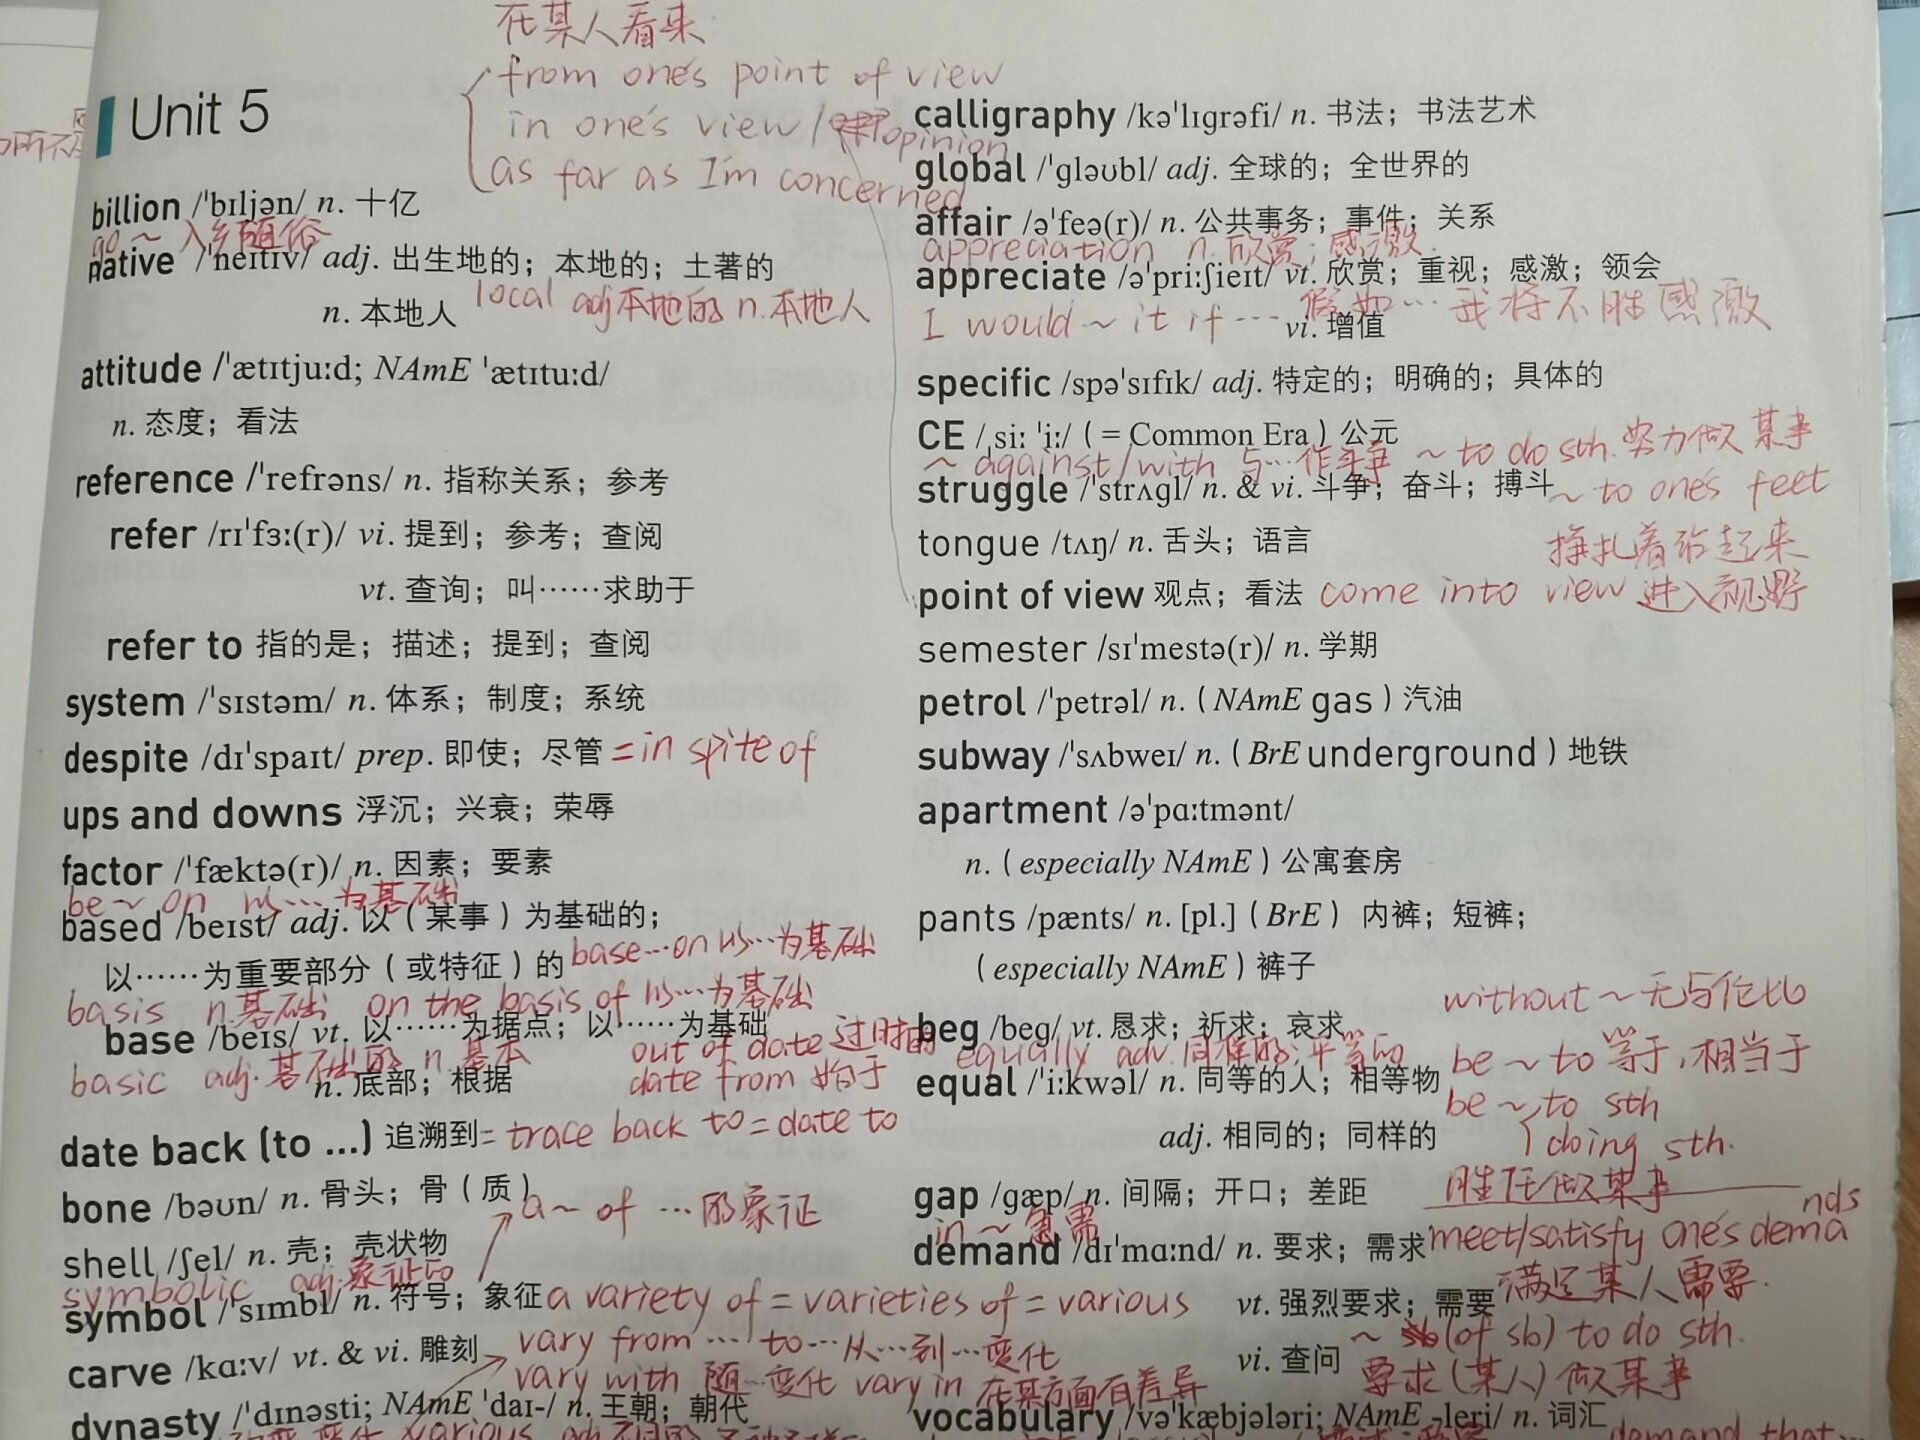 在某人看来
from one's point of view
in one's view / opinion
as far as I'm concerned
Unit 5
billion /ˈbɪljən/ n. 十亿
go ~ 入乡随俗
native /ˈneɪtɪv/ adj. 出生地的；本地的；土著的
n. 本地人 local adj本地的 n.本地人
attitude /ˈætɪtjuːd; NAmE ˈætɪtuːd/
n. 态度；看法
reference /ˈrefrəns/ n. 指称关系；参考
refer /rɪˈfɜː(r)/ vi. 提到；参考；查阅
vt. 查询；叫……求助于
refer to 指的是；描述；提到；查阅
system /ˈsɪstəm/ n. 体系；制度；系统
despite /dɪˈspaɪt/ prep. 即使；尽管 = in spite of
ups and downs 浮沉；兴衰；荣辱
factor /ˈfæktə(r)/ n. 因素；要素
be ~ on 以…为基础
based /beɪst/ adj. 以（某事）为基础的；
以……为重要部分（或特征）的 base…on 以…为基础
basis n.基础 on the basis of 以…为基础
base /beɪs/ vt. 以……为据点；以……为基础
basic adj.基础的 n.基本 out of date 过时的
n. 底部；根据 date from 始于
date back (to ...) 追溯到 = trace back to = date to
bone /bəʊn/ n. 骨头；骨（质）
a ~ of …的象征
shell /ʃel/ n. 壳；壳状物
symbolic adj.象征的
symbol /ˈsɪmbl/ n. 符号；象征 a variety of = varieties of = various
carve /kɑːv/ vt. & vi. 雕刻 vary from … to … 从…到…变化
vary with 随…变化 vary in 在某方面有差异
dynasty /ˈdɪnəsti; NAmE ˈdaɪ-/ n. 王朝；朝代
various adj.
calligraphy /kəˈlɪɡrəfi/ n. 书法；书法艺术
global /ˈɡləʊbl/ adj. 全球的；全世界的
affair /əˈfeə(r)/ n. 公共事务；事件；关系
appreciation n.欣赏；感激.
appreciate /əˈpriːʃieɪt/ vt. 欣赏；重视；感激；领会
I would ~ it if … 假如…我将不胜感激
vi. 增值
specific /spəˈsɪfɪk/ adj. 特定的；明确的；具体的
CE /ˌsiː ˈiː/（= Common Era）公元
~ against/with 与…作斗争 ~ to do sth.努力做某事
struggle /ˈstrʌɡl/ n. & vi. 斗争；奋斗；搏斗 ~ to one's feet
挣扎着站起来
tongue /tʌŋ/ n. 舌头；语言
point of view 观点；看法 come into view 进入视野
semester /sɪˈmestə(r)/ n. 学期
petrol /ˈpetrəl/ n.（NAmE gas）汽油
subway /ˈsʌbweɪ/ n.（BrE underground）地铁
apartment /əˈpɑːtmənt/
n.（especially NAmE）公寓套房
pants /pænts/ n. [pl.]（BrE） 内裤；短裤；
（especially NAmE）裤子
without ~ 无与伦比
beg /beɡ/ vt. 恳求；祈求；哀求
equally adv.同样的；平等的 be ~ to 等于,相当于
equal /ˈiːkwəl/ n. 同等的人；相等物
be ~ to sth
adj. 相同的；同样的
doing sth.
胜任做某事
gap /ɡæp/ n. 间隔；开口；差距
in ~ 急需
demand /dɪˈmɑːnd/ n. 要求；需求 meet/satisfy one's demands
满足某人需要.
vt. 强烈要求；需要
~ (of sb) to do sth.
vi. 查问 要求(某人)做某事
vocabulary /vəˈkæbjələri; NAmE -leri/ n. 词汇
demand that…